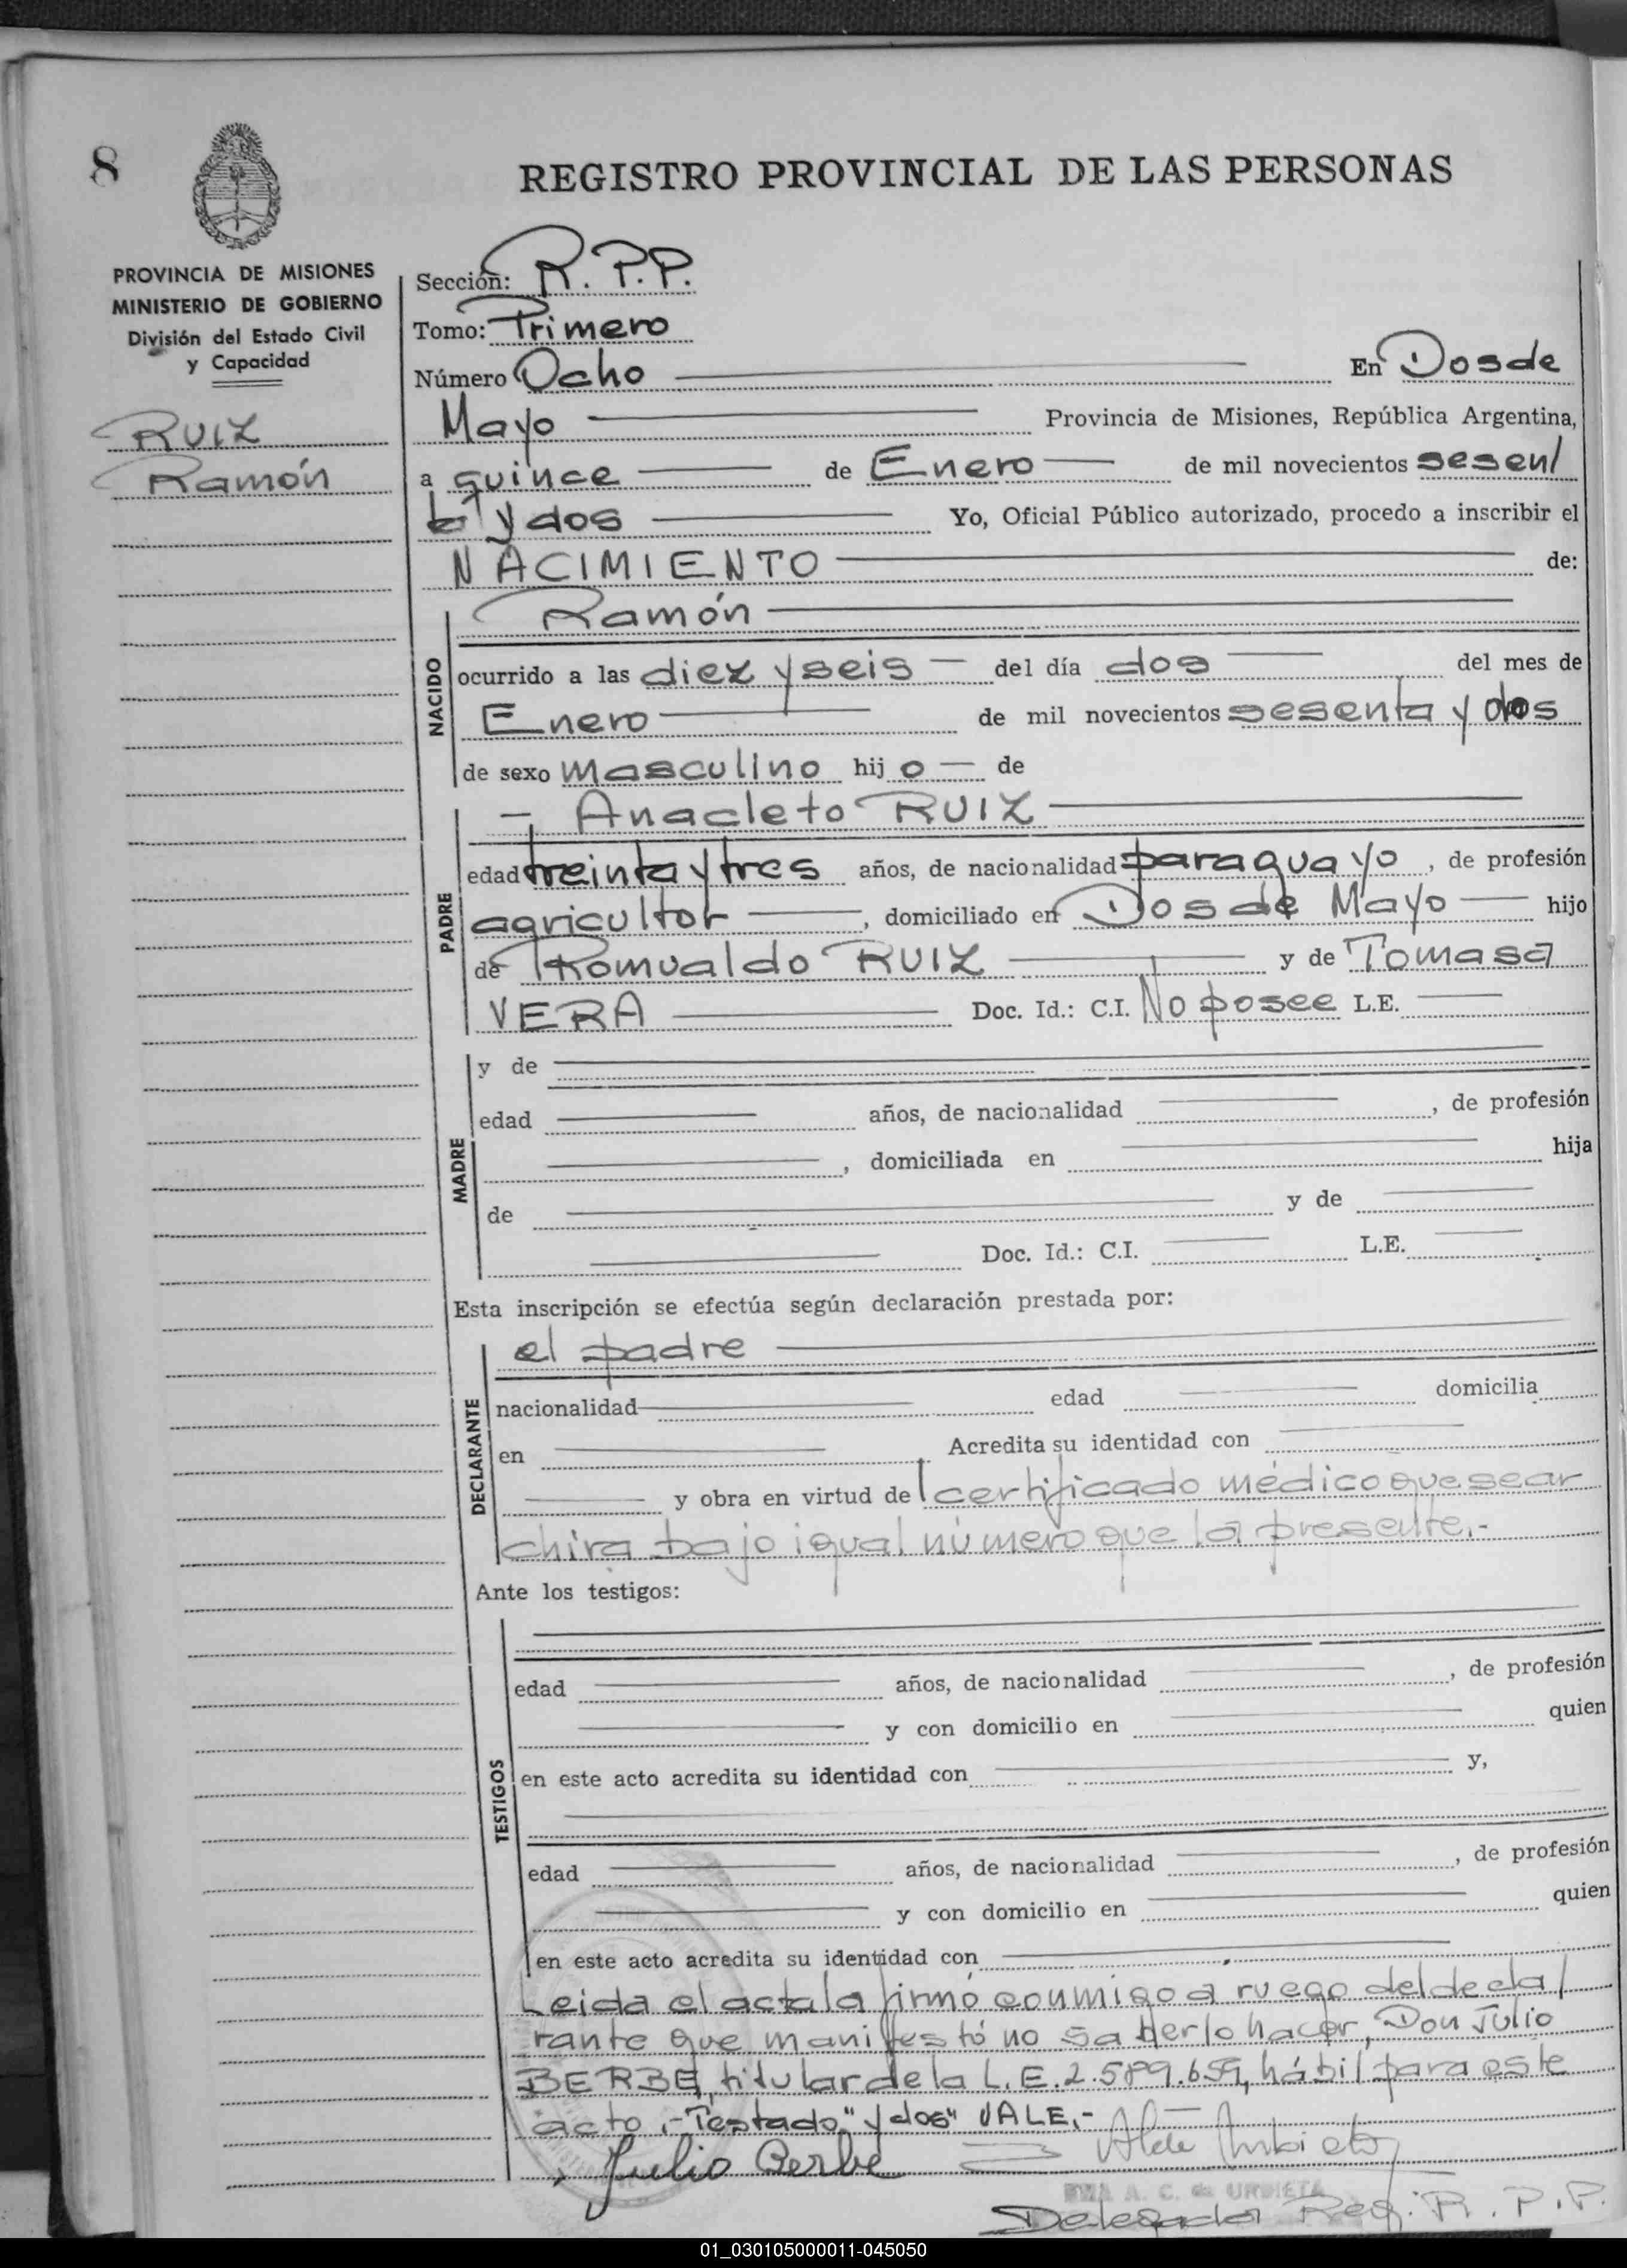 8
REGISTRO PROVINCIAL DE LAS PERSONAS
PROVINCIA DE MISIONES
MINISTERIO DE GOBIERNO
División del Estado Civil
y Capacidad
RUIZ
Ramón
Sección: R. P.P.
Tomo: Primero
Número Ocho En Dos de
Mayo Provincia de Misiones, República Argentina,
a quince de Enero de mil novecientos sesen/
ta y dos Yo, Oficial Público autorizado, procedo a inscribir el
NACIMIENTO de:
NACIDO
Ramón
ocurrido a las diez y seis del día dos del mes de
Enero de mil novecientos sesenta y dos
de sexo masculino hijo de
PADRE
Anacleto RUIZ
edad treinta y tres años, de nacionalidad paraguayo, de profesión
agricultor, domiciliado en Dos de Mayo hijo
de Romualdo RUIZ y de Tomasa
VERA Doc. Id.: C.I. No posee L.E.
MADRE
y de
edad años, de nacionalidad , de profesión
, domiciliada en hija
de y de
Doc. Id.: C.I. L.E.
Esta inscripción se efectúa según declaración prestada por:
DECLARANTE
el padre
nacionalidad edad domicilia
en Acredita su identidad con
y obra en virtud de certificado médico que se ar
chiva bajo igual número que la presente.-
Ante los testigos:
TESTIGOS
edad años, de nacionalidad , de profesión
y con domicilio en quien
en este acto acredita su identidad con y,
edad años, de nacionalidad , de profesión
y con domicilio en quien
en este acto acredita su identidad con
Leida el acta la firmó conmigo a ruego del decla/
rante que manifestó no saberlo hacer, Don Julio
BERBE, titular de la L.E. 2.589.659, hábil para este
acto.- Testado "y dos" VALE.-
Julio Berbe
A. C. de URBIETA
Delegada Reg. R. P. P.
01_030105000011-045050